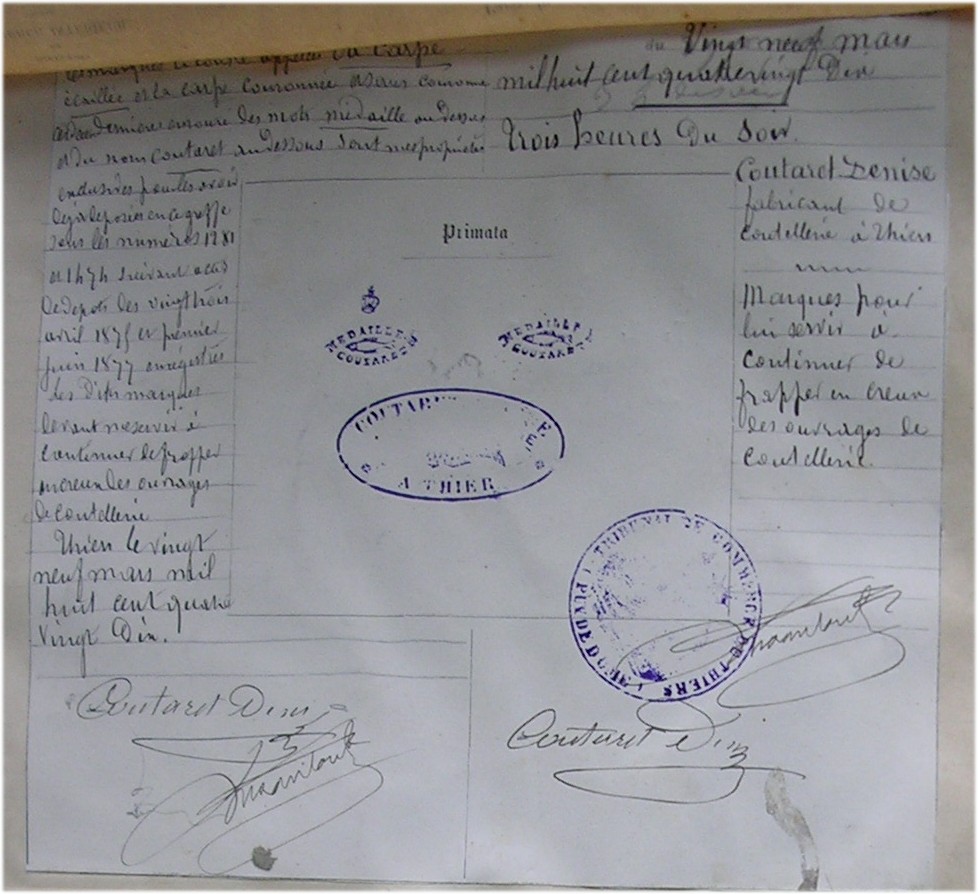 les marques de contre appelées la carpe
écaillée et la carpe couronnée et sans couronne
ces deux dernières entouré des mots médaille au dessus
et du nom Coutaret au dessous sont mes propriétés
exclusives pour les avoir
déjà déposées en ce greffe
sous les numéros 1281
et 1474 suivant actes
de dépots des vingt trois
avril 1875 et premier
juin 1877 enrégistrés
les dites marques
devant me servir à
continuer de frapper
en creux des ouvrages
de coutellerie
Thiers le vingt
neuf mars mil
huit cent quatre
vingt Dix.
du Vingt neuf mars
mil huit cent quatre vingt Dix
trois heures Du Soir.
Primata
MEDAILLE
COUTARET
MEDAILLE
COUTARET
A THIER
Coutaret Denise
fabricant de
coutellerie à Thiers
Marques pour
lui servir à
continuer de
frapper en creux
des ouvrages de
coutellerie.
TRIBUNAL DE COMMERCE DE THIERS
(PUY DE DOME)
Coutaret Denis
Coutaret Denis